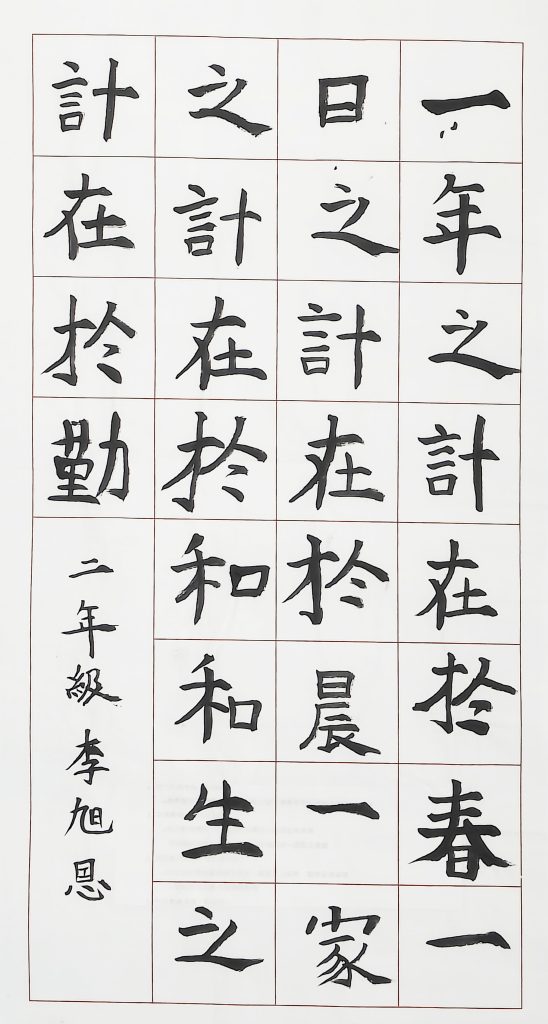 一年之計在於春一
日之計在於晨一家
之計在於和和生之
計在於勤
二年級李旭恩